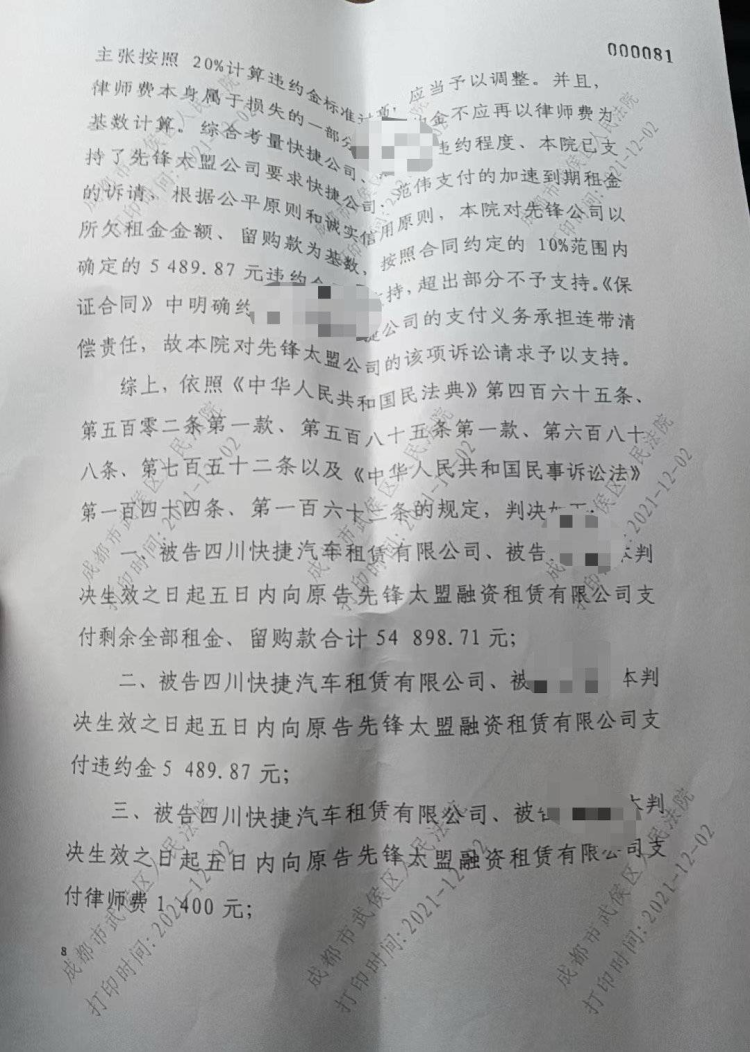 000081
主张按照 20%计算违约金标准过高，应当予以调整。并且，
律师费本身属于损失的一部分 金不应再以律师费为
基数计算。综合考量快捷公司、 违约程度、本院已支
持了先锋太盟公司要求快捷公司、范伟支付的加速到期租金
的诉请，根据公平原则和诚实信用原则，本院对先锋公司以
所欠租金金额、留购款为基数，按照合同约定的 10%范围内
确定的 5 489.87 元违约 持，超出部分不予支持。《保
证合同》中明确约 公司的支付义务承担连带清
偿责任，故本院对先锋太盟公司的该项诉讼请求予以支持。
综上，依照《中华人民共和国民法典》第四百六十五条、
第五百零二条第一款、第五百八十五条第一款、第六百八十
八条、第七百五十二条以及《中华人民共和国民事诉讼法》
第一百四十四条、第一百六十二条的规定，判决如下：
一、被告四川快捷汽车租赁有限公司、被告 本判
决生效之日起五日内向原告先锋太盟融资租赁有限公司支
付剩余全部租金、留购款合计 54 898.71 元；
二、被告四川快捷汽车租赁有限公司、被 本判
决生效之日起五日内向原告先锋太盟融资租赁有限公司支
付违约金 5 489.87 元；
三、被告四川快捷汽车租赁有限公司、被告 本判
决生效之日起五日内向原告先锋太盟融资租赁有限公司支
付律师费 1 400 元；
8
成都市武侯区人民法院
打印时间：2021-12-02